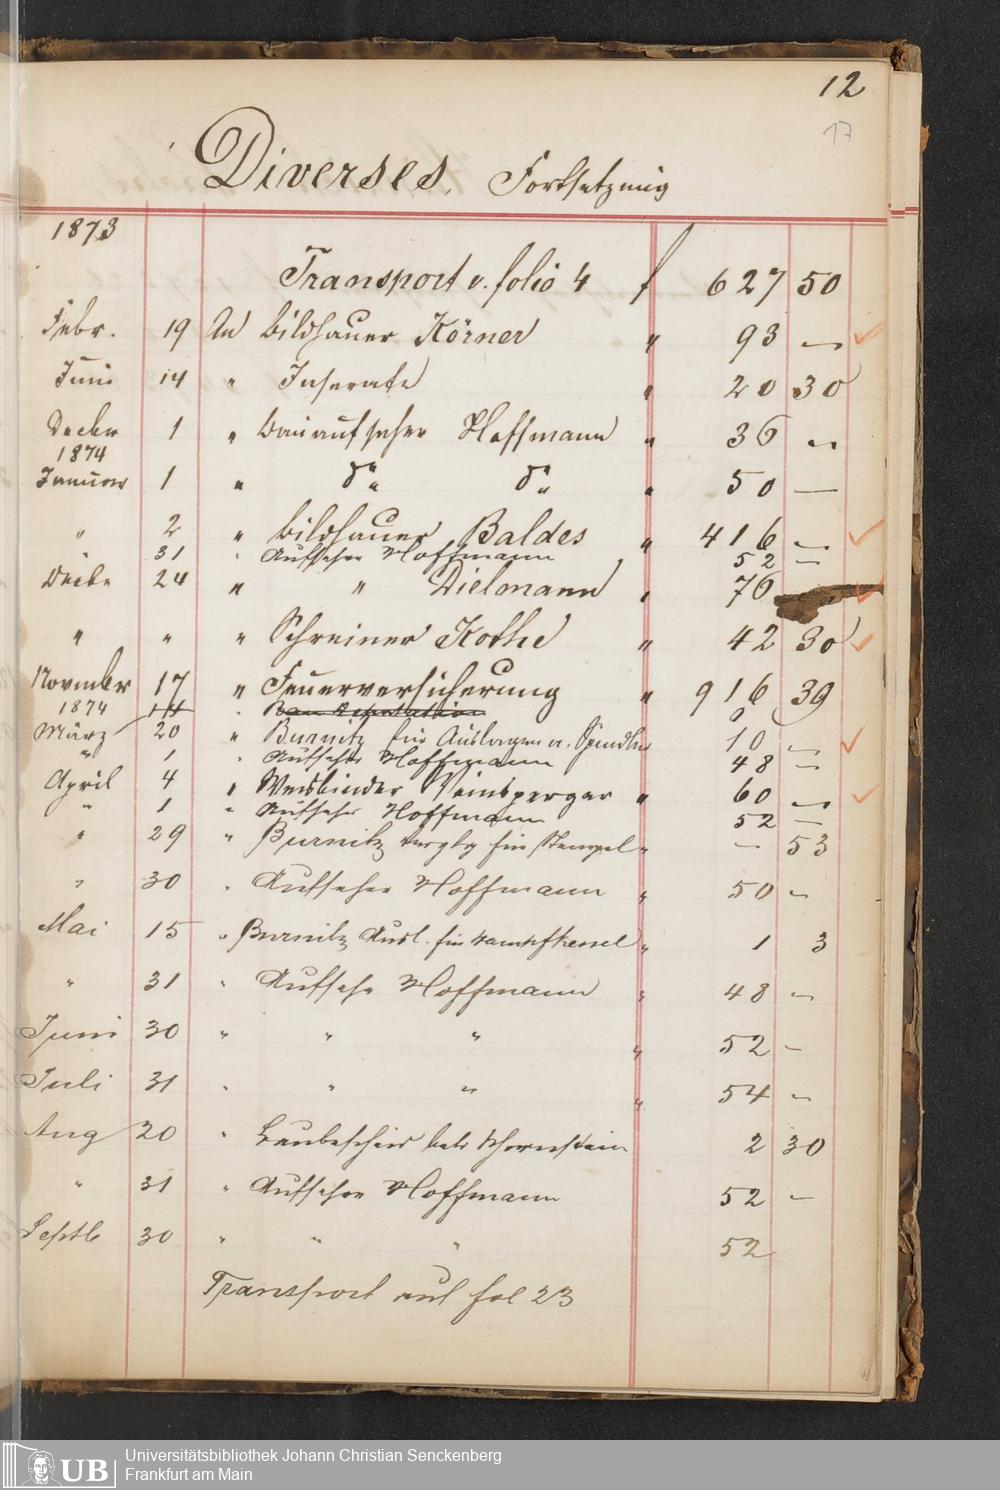 12
17
Diverses. Fortsetzung
1873
Transport v. folio 4 f 627 50
Febr. 19 An Bildhauer Körner " 93 —
Juni 14 " Inserate " 20 30
Decbr 1 " Bauaufseher Hoffmann " 36 —
1874
Januar 1 " do do " 50 —
" 2 " Bildhauer Baldes " 416 —
31 " Aufseher Hoffmann 52 —
Decbr 24 " " Dielmann " 76
" " " Schreiner Kothe " 42 30
November 17 " Feuerversicherung " 916 39
1874 14 " Bau Deputation 0
März 20 " Burnitz für Auslagen a. Spindler 10 —
" 1 " Aufseher Hoffmann 48 —
April 4 " Weisbinder Weinsperger " 60 —
" 1 " Aufseher Hoffmann 52 —
" 29 " Burnitz für Stempel " — 53
" 30 " Aufseher Hoffmann " 50 —
Mai 15 " Burnitz Ausl. für Dampfkessel " 1 3
" 31 " Aufsehr Hoffmann " 48 —
Juni 30 " " " " 52 —
Juli 31 " " " " 54 —
Aug 20 " Baubescheid betr Schornstein 2 30
" 31 " Aufseher Hoffmann 52 —
Septb 30 " " " 52
Transport auf fol 23
Universitätsbibliothek Johann Christian Senckenberg
Frankfurt am Main
UB